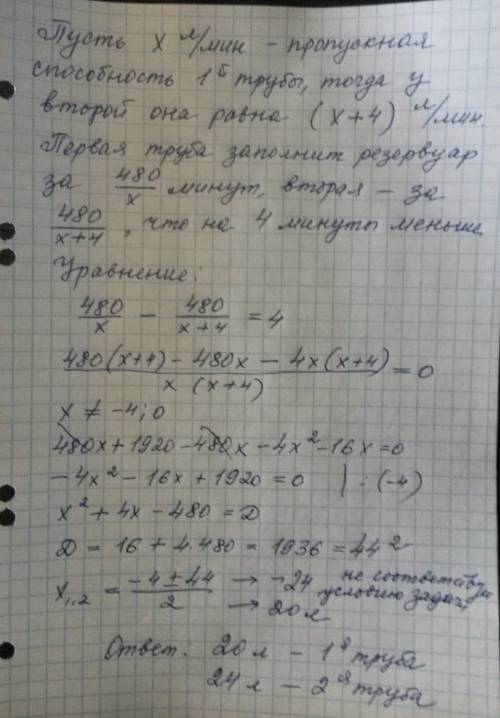 Пусть x л/мин - пропускная
способность 1й трубы, тогда у
второй она равна (x+4) л/мин.
Первая труба заполнит резервуар
за 480/x минут, вторая - за
480/(x+4), что на 4 минуты меньше
Уравнение:
480/x - 480/(x+4) = 4
(480(x+4) - 480x - 4x(x+4))/(x(x+4)) = 0
x ≠ -4; 0
480x + 1920 - 480x - 4x² - 16x = 0
-4x² - 16x + 1920 = 0 | : (-4)
x² + 4x - 480 = D
D = 16 + 4·480 = 1936 = 44²
x₁,₂ = (-4 ± 44)/2 → -24 не соответству
условию задач
→ 20 л
Ответ: 20 л - 1я труба
24 л - 2я труба